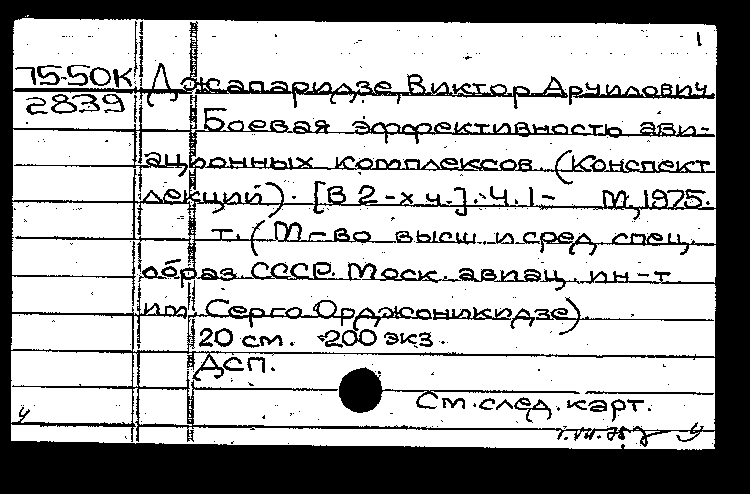 1
75-50К
2839
Джапаридзе, Виктор Арчилович.
Боевая эффективность ави-
ационных комплексов. (Конспект
лекций). [В 2-х ч.]. Ч. 1- М., 1975.
т. (М-во высш. и сред. спец.
образ. СССР. Моск. авиац. ин-т
им. Серго Орджоникидзе).
20 см. 200 экз.
ДСП.
См. след. карт.